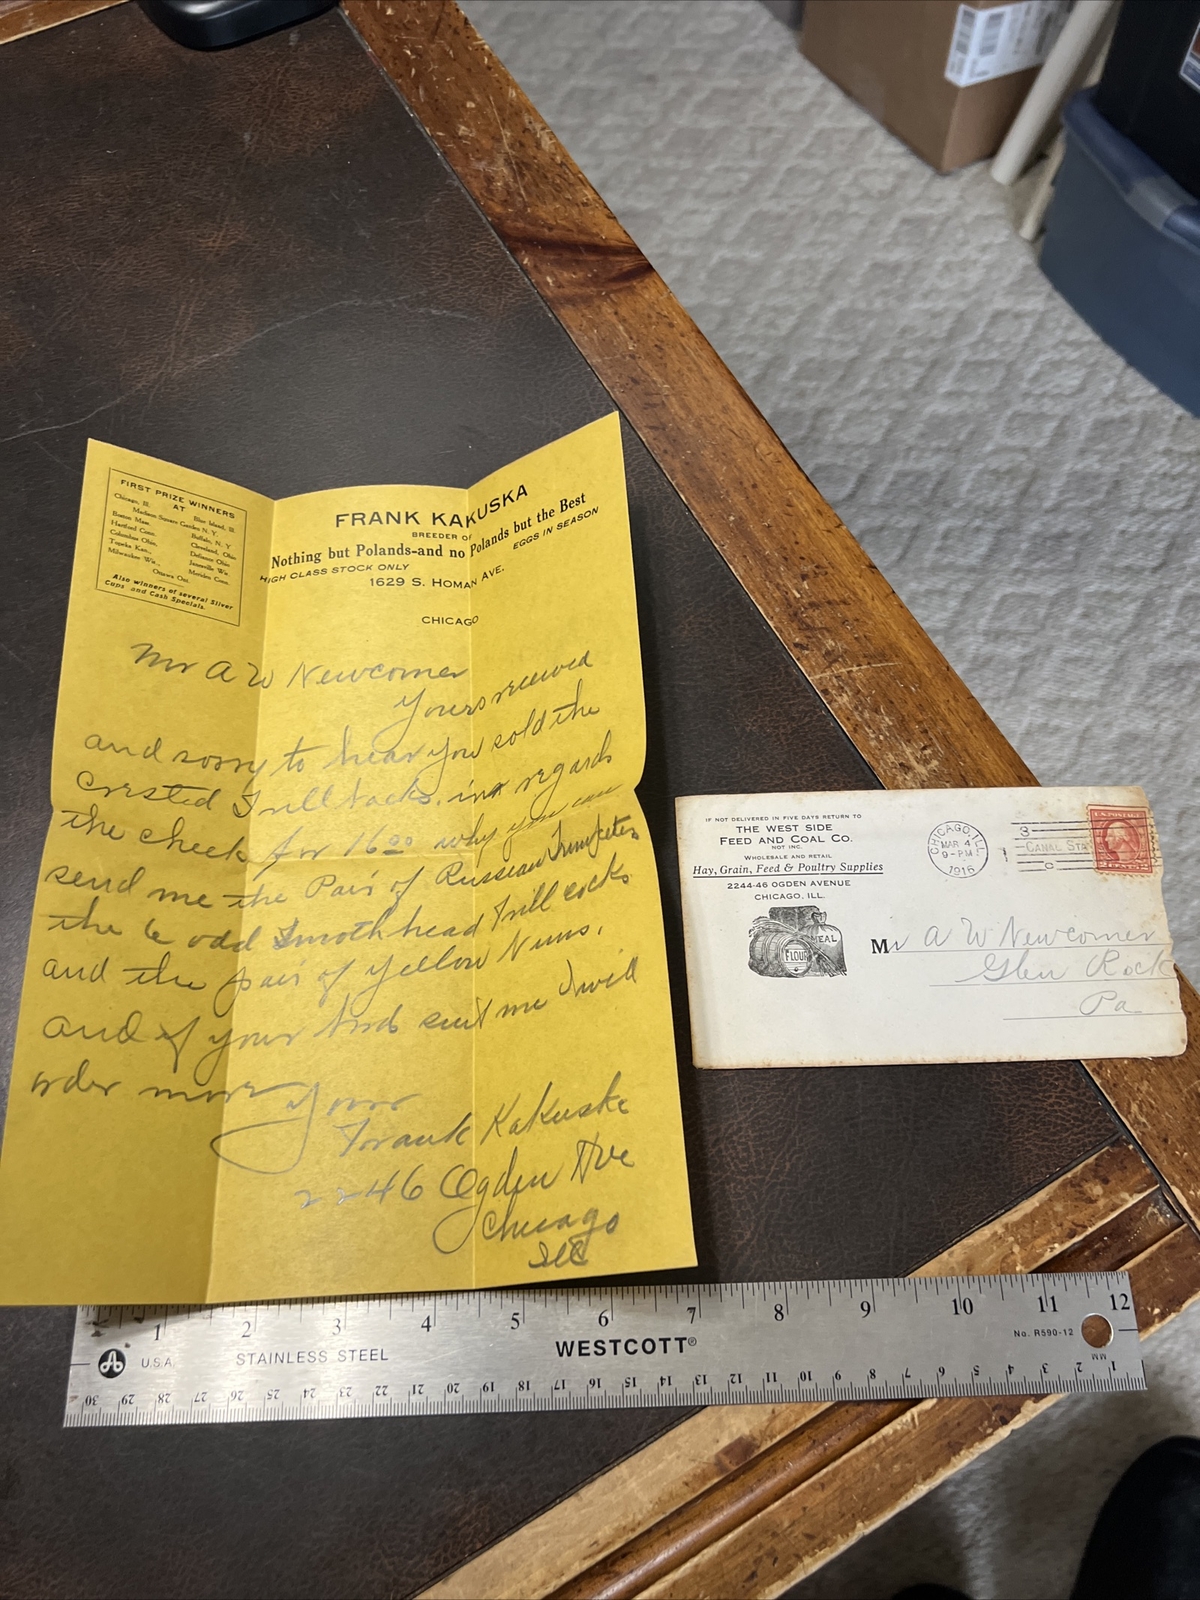 FIRST PRIZE WINNERS
AT
Chicago, Ill. Blue Island, Ill.
Madison Square Garden N. Y.
Boston Mass. Buffalo, N. Y
Hartford Conn. Cleveland, Ohio
Columbus Ohio. Defiance Ohio
Topeka Kan., Janesville Wis.
Milwaukee Wis., Meriden Conn.
Ottawa Ont.
Also winners of several Silver
Cups and Cash Specials.
FRANK KAKUSKA
BREEDER OF
Nothing but Polands-and no Polands but the Best
HIGH CLASS STOCK ONLY EGGS IN SEASON
1629 S. HOMAN AVE.
CHICAGO
Mr A W Newcomer
Yours received
and sorry to hear you sold the
Crested Frill backs. in regards
the check for 16 00 why you can
send me the Pair of Russian Trumpeters
the 6 odd Smoth head Frill cocks
and the pair of yellow Nuns.
and if your birds suit me I will
order more Yours
Frank Kakuska
2246 Ogden Ave
Chicago
Ill
IF NOT DELIVERED IN FIVE DAYS RETURN TO
THE WEST SIDE
FEED AND COAL CO.
NOT INC.
WHOLESALE AND RETAIL
Hay, Grain, Feed & Poultry Supplies
2244-46 OGDEN AVENUE
CHICAGO, ILL.
MEAL
FLOUR
CHICAGO, ILL.
MAR 4
9-PM
1916
3
CANAL STA
U.S. POSTAGE
Mr A W Newcomer
Glen Rock
Pa
1 2 3 4 5 6 7 8 9 10 11 12
U.S.A. STAINLESS STEEL WESTCOTT® No. R590-12
MM
30 29 28 27 26 25 24 23 22 21 20 19 18 17 16 15 14 13 12 11 10 9 8 7 6 5 4 3 2 1